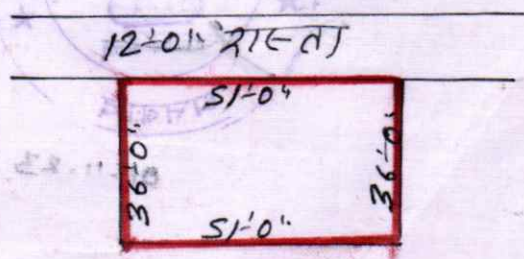 12'-0" रास्ता
51'-0"
36'-0"
36'-0"
51'-0"